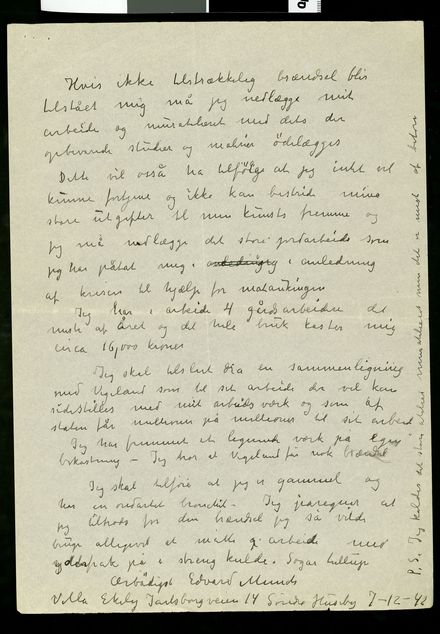 Hvis ikke tilstrækkelig brændsel blir
tilstået mig må jeg nedlægge mit
arbeide og muratelieret med dets der
opbevarede studier og malrier ödelægges
Dette vil også ha tilfölge at jeg intet vil
kunne fortjene og ikke kan bestride mine
store utgifter til min kunsts fremme og
jeg må nedlægge det store jordarbeide som
jeg har påtat mig i anledning
af krisen til hjælp for matauking
Jeg har i arbeide 4 gårdsarbeidere det
meste af året og det hele bruk koster mig
circa 16,000 kroner
Jeg skal tilslut dra en sammenligning
med Vigeland som til sit arbeide der vel kan
sidestilles med mit arbeids værk og som af
staten får millioner på millioner til sit arbeid
Jeg har fremmet et lignende værk på egen
bekostning – Jeg tror at Vigeland får nok brændsel
Jeg skal tilföie at jeg er gammel og
har en ondartet bronkit – Jeg
jeg tiltrods for den brændsel jeg så vilde
bruge alligevel et måtte arbeide med
på i streng kulde.
Ærbödigst Edvard Munch
Villa Ekely Jarlsborgveien 14 Söndre Huseby 7-12-42
P.S. Jeg det er mest af beton